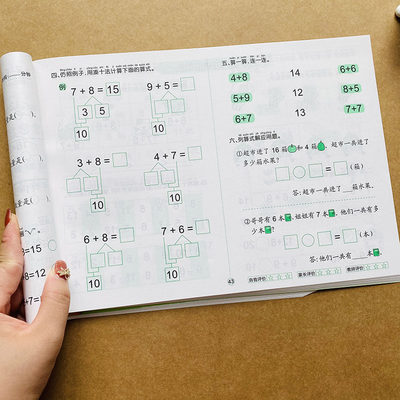 四、仿照例子,用凑十法计算下面的算式。
例 7+8=15 9+5=
3 5
10 10
3+8= 4+7=
10 10
6+8= 7+6=
10 10
五、算一算,连一连。
4+8 14 6+6
5+9 12 8+5
6+7 13 7+7
六、列算式解应用题。
①超市进了 16 箱 和 4 箱 ,超市一共进了
多少箱水果?
= (箱)
答:超市一共进了 箱水果。
②哥哥有 6 本 ,姐姐有 7 本 ,他们一共有多
少本 ?
= (本)
答:他们一共有 本
43 自我评价 家长评价 教师评价
分钟
8=15
8=12